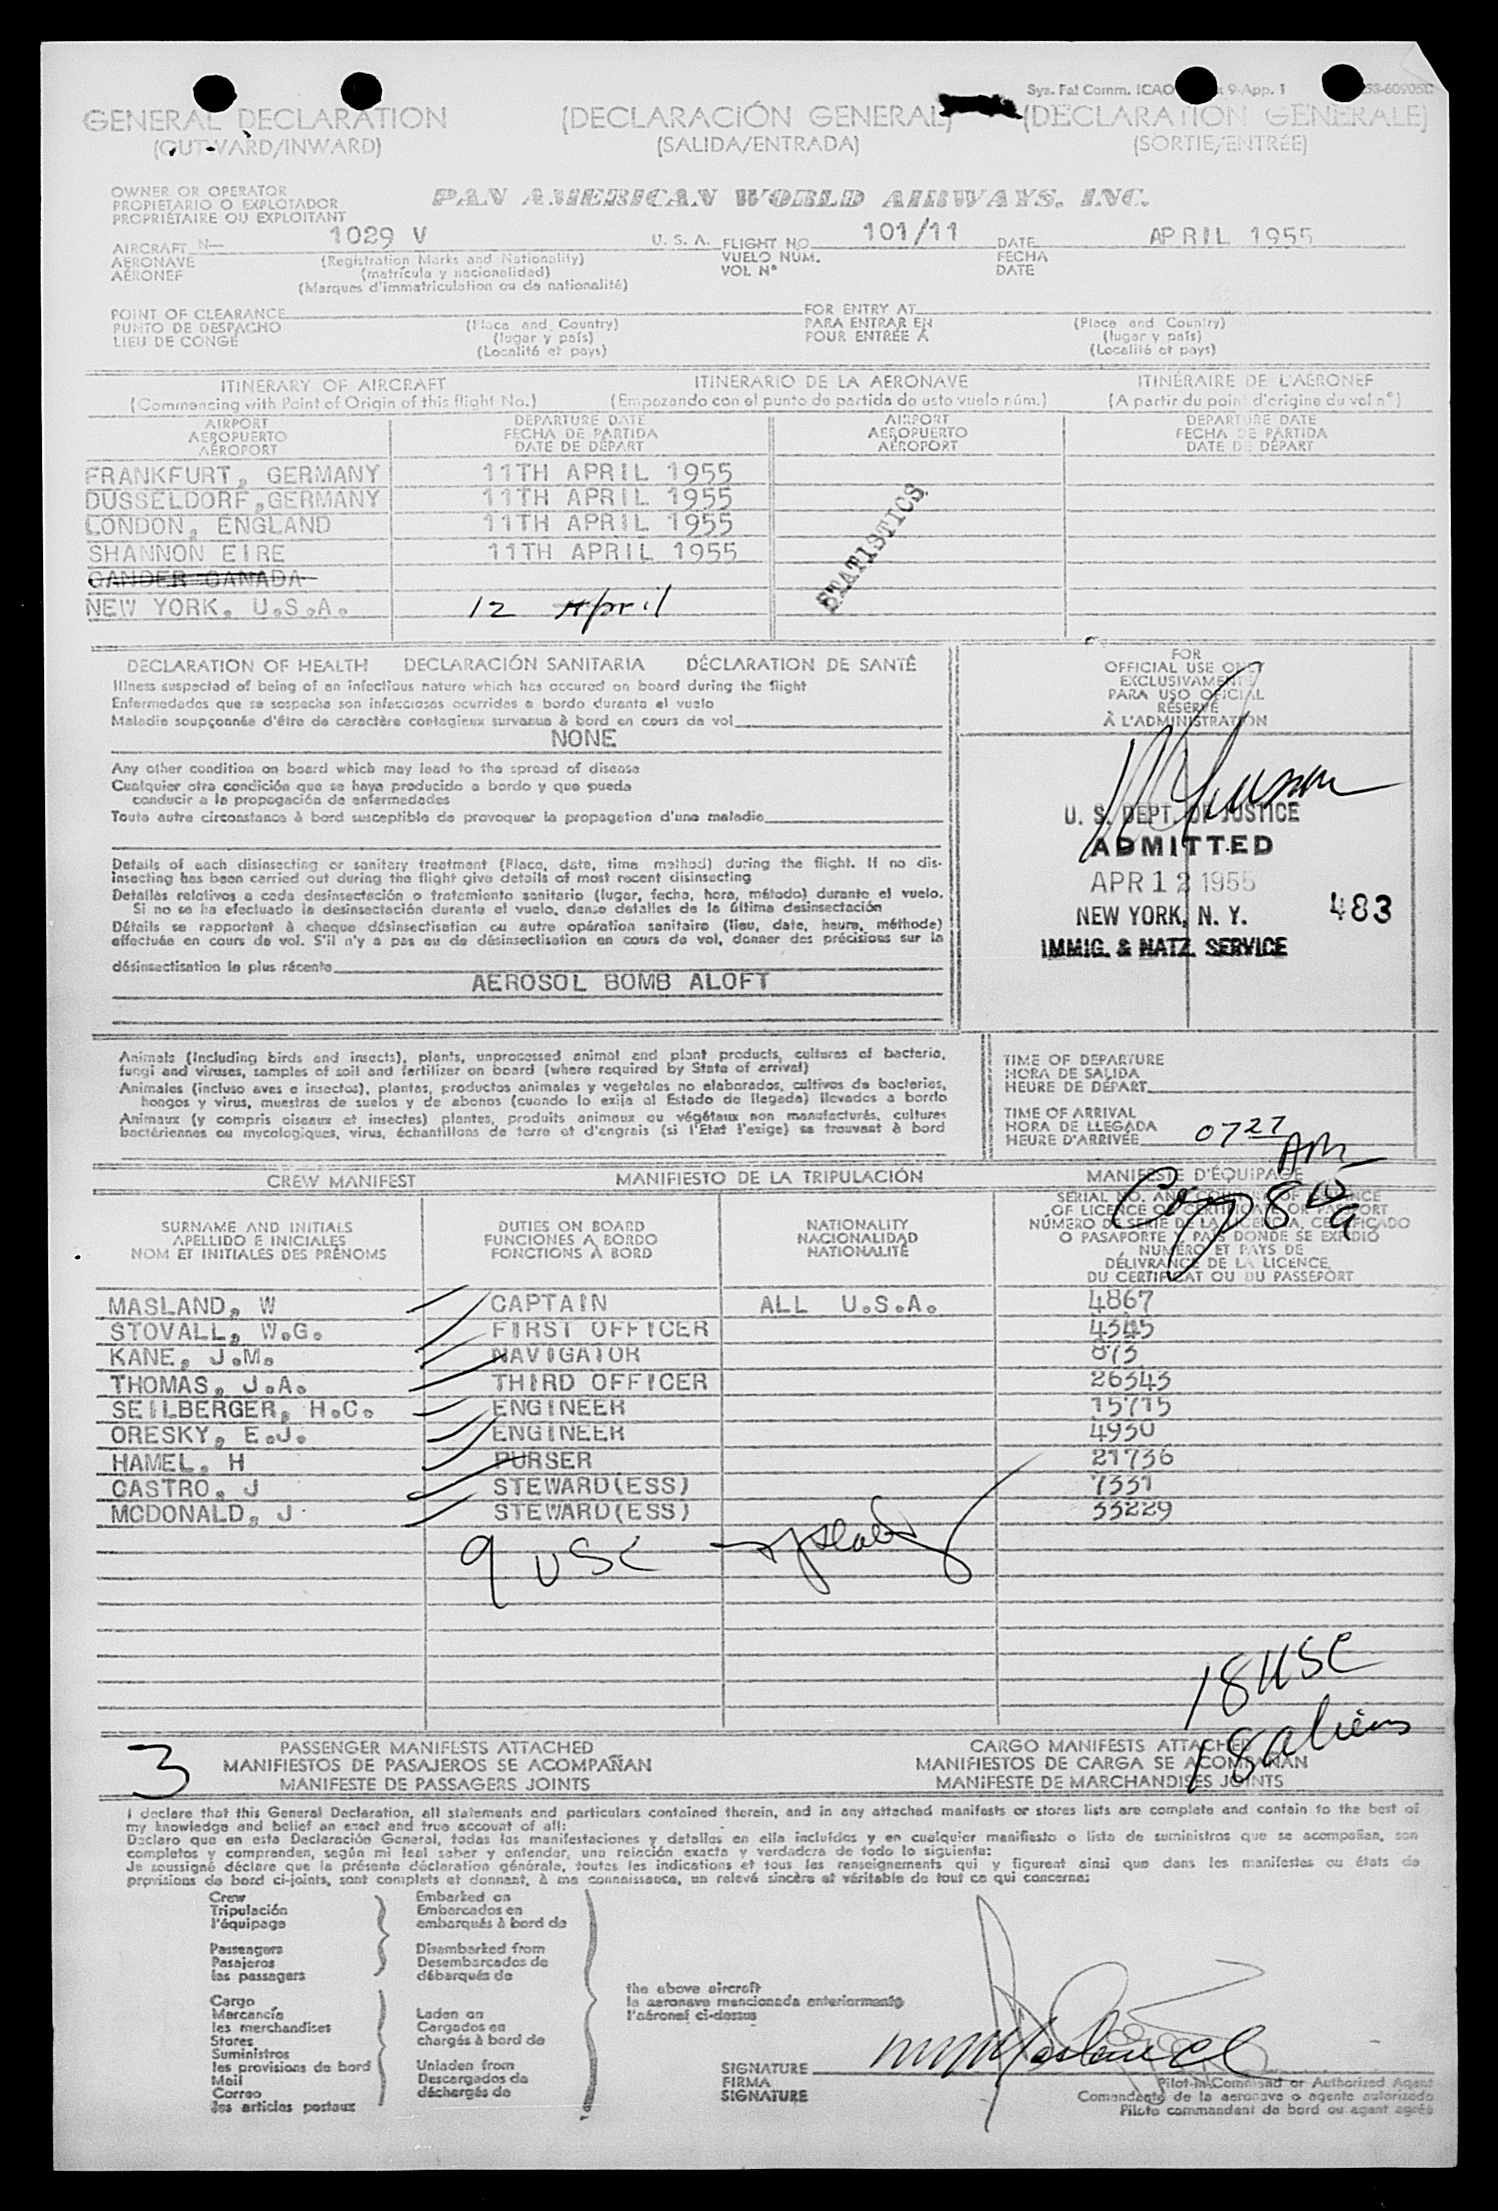 Sys. Fal Comm. ICAO 9-App. 1
GENERAL DECLARATION (DECLARACIÓN GENERAL) (DÉCLARATION GÉNÉRALE)
(OUTWARD/INWARD) (SALIDA/ENTRADA) (SORTIE/ENTRÉE)
OWNER OR OPERATOR
PROPIETARIO O EXPLOTADOR
PROPRIÉTAIRE OU EXPLOITANT
PAN AMERICAN WORLD AIRWAYS, INC.
AIRCRAFT N— 1029 V U. S. A. FLIGHT NO. 101/11 DATE APRIL 1955
AERONAVE (Registration Marks and Nationality) VUELO NÚM. FECHA
AÉRONEF (matrícula y nacionalidad) VOL Nº DATE
(Marques d'immatriculation ou de nationalité)
POINT OF CLEARANCE FOR ENTRY AT
PUNTO DE DESPACHO (Place and Country) PARA ENTRAR EN (Place and Country)
LIEU DE CONGÉ (lugar y país) POUR ENTRÉE À (lugar y país)
(Localité et pays) (Localité et pays)
ITINERARY OF AIRCRAFT ITINERARIO DE LA AERONAVE ITINÉRAIRE DE L'AÉRONEF
(Commencing with Point of Origin of this flight No.) (Empezando con el punto de partida de este vuelo núm.) (A partir du point d'origine du vol nº)
AIRPORT DEPARTURE DATE AIRPORT DEPARTURE DATE
AEROPUERTO FECHA DE PARTIDA AEROPUERTO FECHA DE PARTIDA
AÉROPORT DATE DE DÉPART AÉROPORT DATE DE DÉPART
FRANKFURT, GERMANY 11TH APRIL 1955
DUSSELDORF, GERMANY 11TH APRIL 1955
LONDON, ENGLAND 11TH APRIL 1955
SHANNON EIRE 11TH APRIL 1955
GANDER CANADA
NEW YORK, U.S.A. 12 April
STATISTICS
DECLARATION OF HEALTH DECLARACIÓN SANITARIA DÉCLARATION DE SANTÉ
Illness suspected of being of an infectious nature which has occured on board during the flight
Enfermedades que se sospecha son infecciosas ocurridas a bordo durante el vuelo
Maladie soupçonnée d'être de caractère contagieux survenue à bord en cours de vol
NONE
Any other condition on board which may lead to the spread of disease
Cualquier otra condición que se haya producido a bordo y que pueda
conducir a la propagación de enfermedades
Toute autre circonstance à bord susceptible de provoquer la propagation d'une maladie
Details of each disinsecting or sanitary treatment (Place, date, time method) during the flight. If no dis-
insecting has been carried out during the flight give details of most recent disinsecting
Detalles relativos a cada desinsectación o tratamiento sanitario (lugar, fecha, hora, método) durante el vuelo.
Si no se ha efectuado la desinsectación durante el vuelo, dense detalles de la última desinsectación
Détails se rapportant à chaque désinsectisation ou autre opération sanitaire (lieu, date, heure, méthode)
effectuée en cours de vol. S'il n'y a pas eu de désinsectisation en cours de vol, donner des précisions sur la
désinsectisation la plus récente
AEROSOL BOMB ALOFT
FOR
OFFICIAL USE ONLY
EXCLUSIVAMENTE
PARA USO OFICIAL
RÉSERVÉ
À L'ADMINISTRATION
U. S. DEPT. OF JUSTICE
ADMITTED
APR 12 1955
NEW YORK, N. Y. 483
IMMIG. & NATZ. SERVICE
Animals (including birds and insects), plants, unprocessed animal and plant products, cultures of bacteria,
fungi and viruses, samples of soil and fertilizer on board (where required by State of arrival)
Animales (incluso aves e insectos), plantas, productos animales y vegetales no elaborados, cultivos de bacterias,
hongos y virus, muestras de suelos y de abonos (cuando lo exija el Estado de llegada) llevados a bordo
Animaux (y compris oiseaux et insectes) plantes, produits animaux ou végétaux non manufacturés, cultures
bactériennes ou mycologiques, virus, échantillons de terre et d'engrais (si l'Etat l'exige) se trouvant à bord
TIME OF DEPARTURE
HORA DE SALIDA
HEURE DE DÉPART
TIME OF ARRIVAL
HORA DE LLEGADA
HEURE D'ARRIVÉE 0727 AM
CREW MANIFEST MANIFIESTO DE LA TRIPULACIÓN MANIFESTE D'ÉQUIPAGE
SURNAME AND INITIALS DUTIES ON BOARD NATIONALITY
APELLIDO E INICIALES FUNCIONES A BORDO NACIONALIDAD
NOM ET INITIALES DES PRÉNOMS FONCTIONS À BORD NATIONALITÉ
SERIAL NO. AND COUNTRY OF ISSUANCE
OF LICENCE OR CERTIFICATE OR PASSPORT
NÚMERO DE SERIE DE LA LICENCIA, CERTIFICADO
O PASAPORTE Y PAÍS DONDE SE EXPIDIÓ
NUMÉRO ET PAYS DE
DÉLIVRANCE DE LA LICENCE,
DU CERTIFICAT OU DU PASSEPORT
MASLAND, W CAPTAIN ALL U.S.A. 4867
STOVALL, W.G. FIRST OFFICER 4345
KANE, J.M. NAVIGATOR 873
THOMAS, J.A. THIRD OFFICER 26343
SEILBERGER, H.C. ENGINEER 15715
ORESKY, E.J. ENGINEER 4930
HAMEL, H PURSER 21736
CASTRO, J STEWARD(ESS) 7331
MCDONALD, J STEWARD(ESS) 33229
9 USC
18 USC
18 aliens
3
PASSENGER MANIFESTS ATTACHED CARGO MANIFESTS ATTACHED
MANIFIESTOS DE PASAJEROS SE ACOMPAÑAN MANIFIESTOS DE CARGA SE ACOMPAÑAN
MANIFESTE DE PASSAGERS JOINTS MANIFESTE DE MARCHANDISES JOINTS
I declare that this General Declaration, all statements and particulars contained therein, and in any attached manifests or stores lists are complete and contain to the best of
my knowledge and belief an exact and true account of all:
Declaro que en esta Declaración General, todas las manifestaciones y detalles en ella incluídos y en cualquier manifiesto o lista de suministros que se acompañan, son
completos y comprenden, según mi leal saber y entender, una relación exacta y verdadera de todo lo siguiente:
Je soussigné déclare que la présente déclaration générale, toutes les indications et tous les renseignements qui y figurent ainsi que dans les manifestes ou états de
provisions de bord ci-joints, sont complets et donnent, à ma connaissance, un relevé sincère et véritable de tout ce qui concerne:
Crew Embarked on
Tripulación Embarcados en
l'équipage embarqués à bord de
Passengers Disembarked from
Pasajeros Desembarcados de
les passagers débarqués de
the above aircraft
la aeronave mencionada anteriormente
l'aéronef ci-dessus
Cargo
Mercancía Laden on
les merchandises Cargados en
Stores chargés à bord de
Suministros
les provisions de bord Unladen from
Mail Descargados de
Correo déchargés de
les articles postaux
SIGNATURE
FIRMA
SIGNATURE
Pilot-in-Command or Authorized Agent
Comandante de la aeronave o agente autorizado
Pilote commandant de bord ou agent agréé